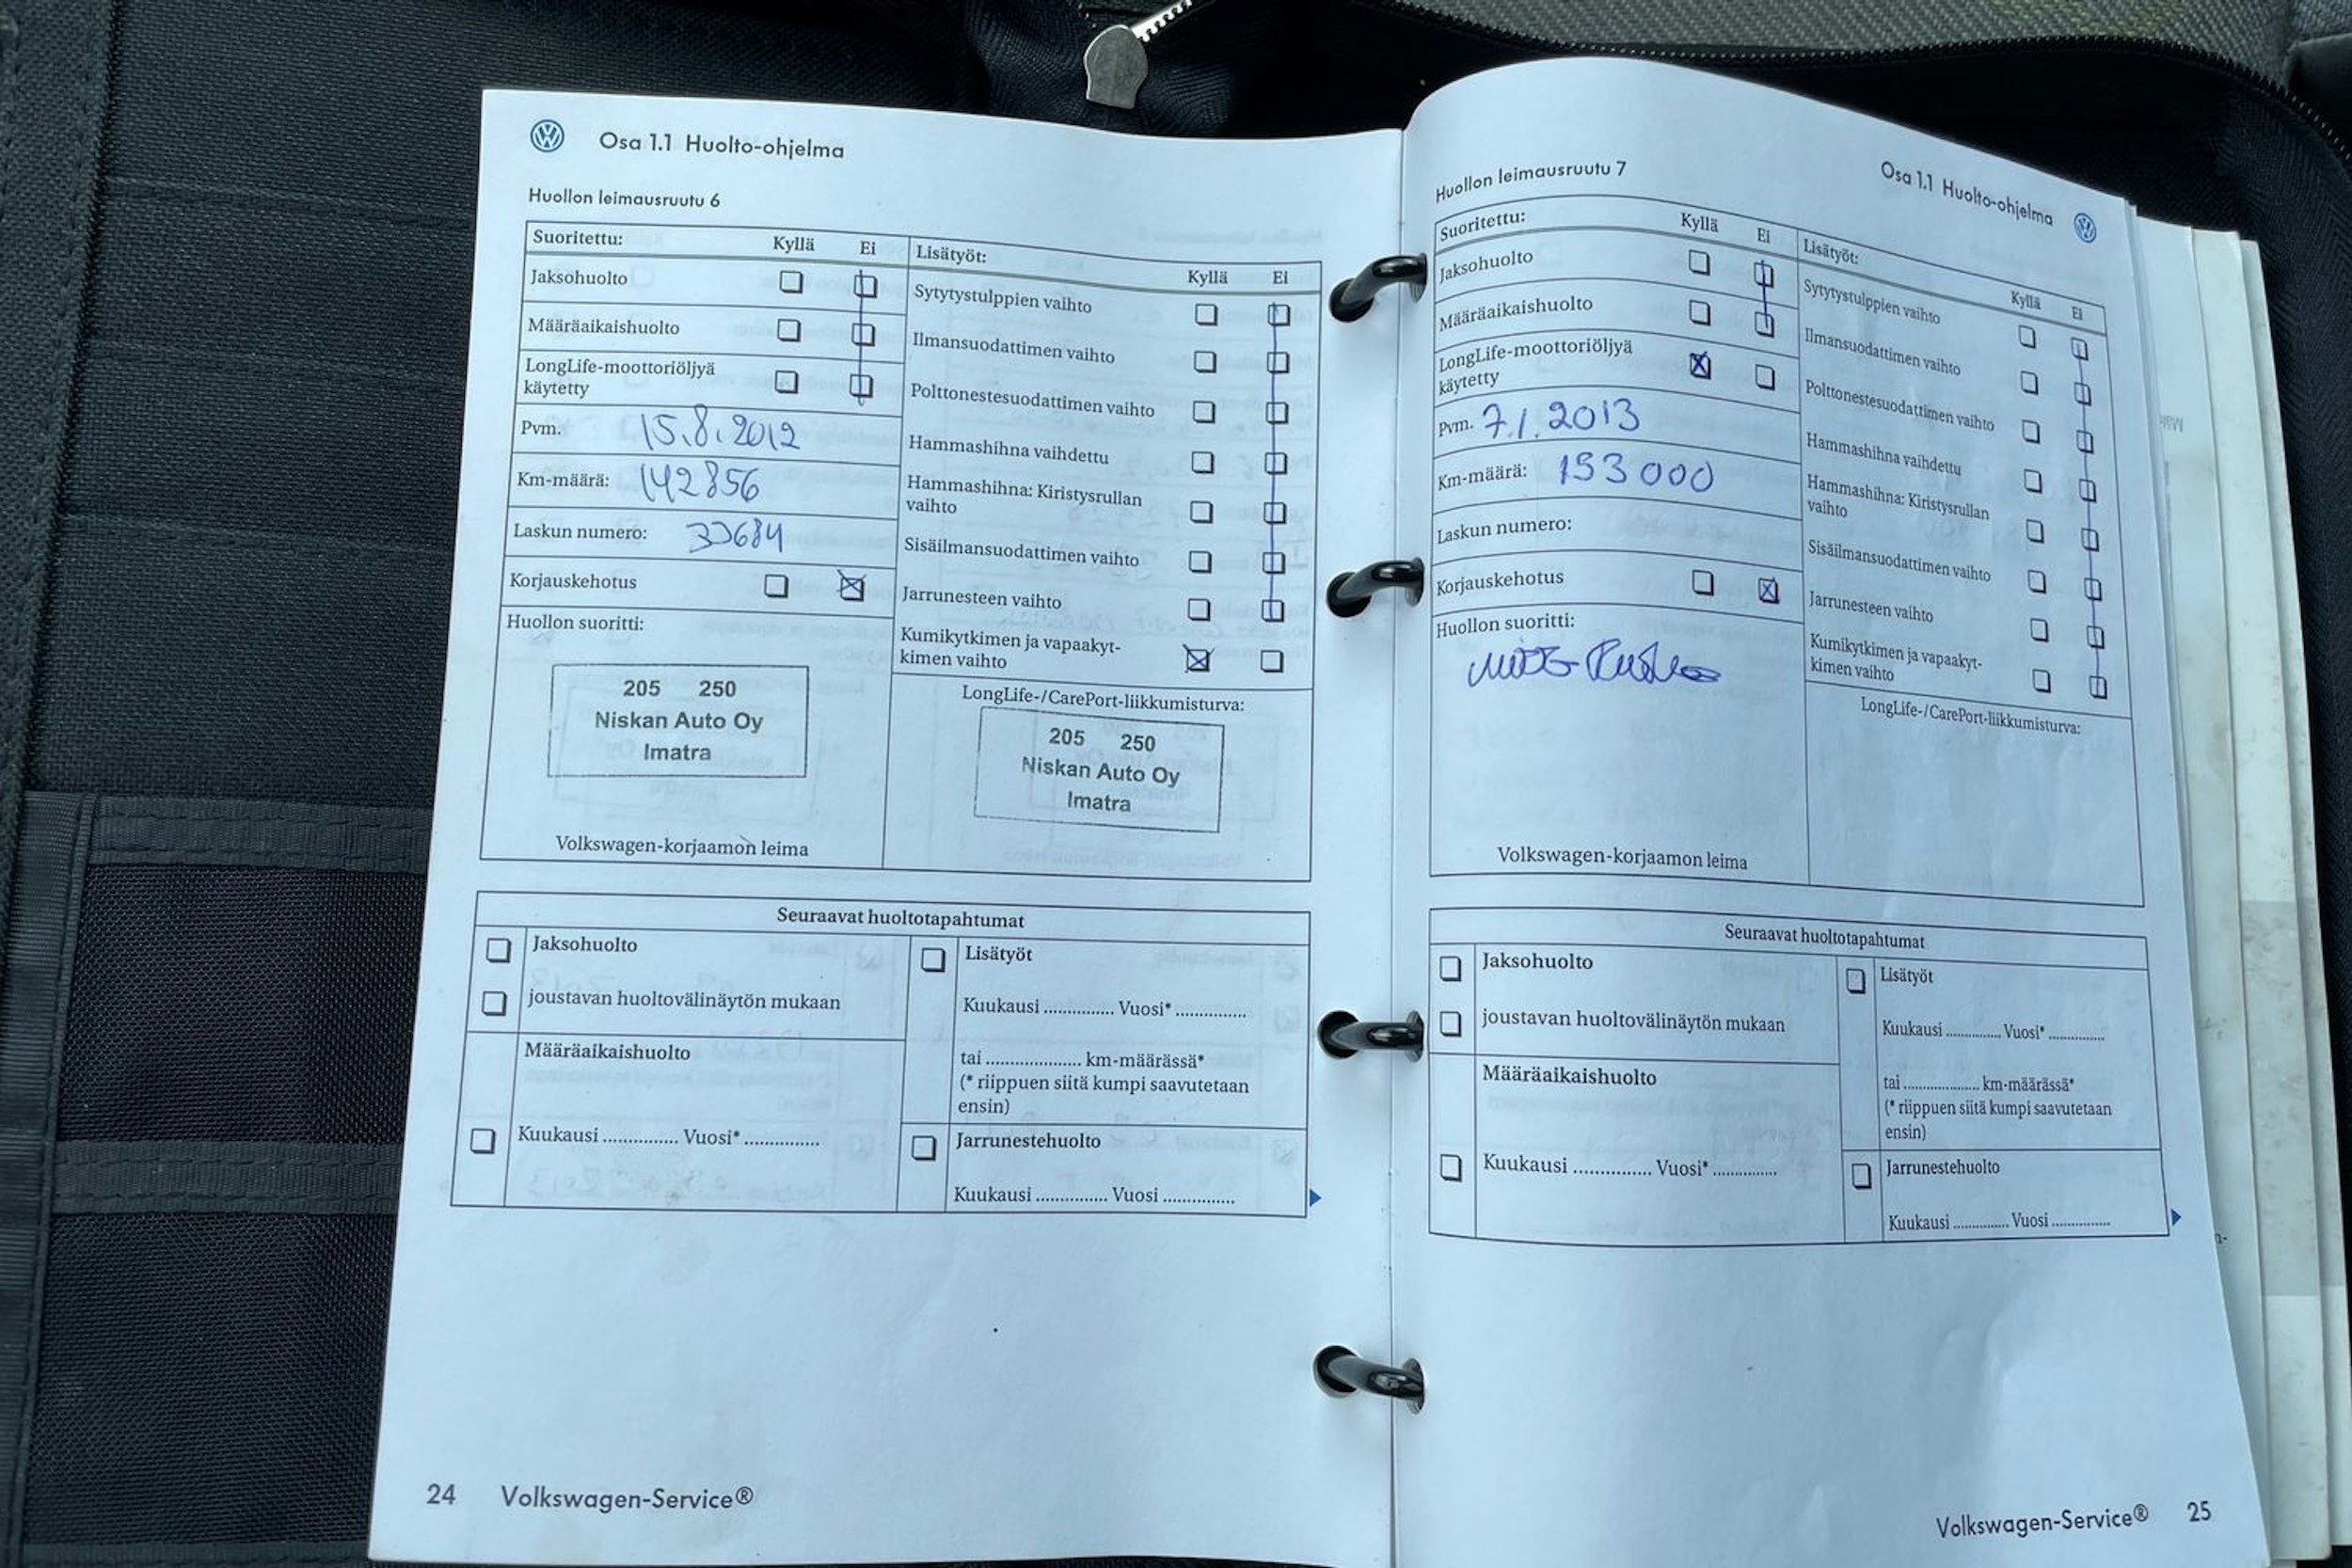 Osa 1.1 Huolto-ohjelma
Huollon leimausruutu 6
Suoritettu: Kyllä Ei
Jaksohuolto
Määräaikaishuolto
LongLife-moottoriöljyä
käytetty
Pvm. 15.8.2012
Km-määrä: 142856
Laskun numero: 33684
Korjauskehotus
Huollon suoritti:
205 250
Niskan Auto Oy
Imatra
Volkswagen-korjaamon leima
Lisätyöt:
Kyllä Ei
Sytytystulppien vaihto
Ilmansuodattimen vaihto
Polttonestesuodattimen vaihto
Hammashihna vaihdettu
Hammashihna: Kiristysrullan
vaihto
Sisäilmansuodattimen vaihto
Jarrunesteen vaihto
Kumikytkimen ja vapaakyt-
kimen vaihto
LongLife-/CarePort-liikkumisturva:
205 250
Niskan Auto Oy
Imatra
Seuraavat huoltotapahtumat
Jaksohuolto
joustavan huoltovälinäytön mukaan
Määräaikaishuolto
Kuukausi ............... Vuosi* ...............
Lisätyöt
Kuukausi ............... Vuosi* ...............
tai .................... km-määrässä*
(* riippuen siitä kumpi saavutetaan
ensin)
Jarrunestehuolto
Kuukausi ............... Vuosi ...............
24 Volkswagen-Service®
Osa 1.1 Huolto-ohjelma
Huollon leimausruutu 7
Suoritettu: Kyllä Ei
Jaksohuolto
Määräaikaishuolto
LongLife-moottoriöljyä
käytetty
Pvm. 7.1.2013
Km-määrä: 153000
Laskun numero:
Korjauskehotus
Huollon suoritti:
Volkswagen-korjaamon leima
Lisätyöt:
Kyllä Ei
Sytytystulppien vaihto
Ilmansuodattimen vaihto
Polttonestesuodattimen vaihto
Hammashihna vaihdettu
Hammashihna: Kiristysrullan
vaihto
Sisäilmansuodattimen vaihto
Jarrunesteen vaihto
Kumikytkimen ja vapaakyt-
kimen vaihto
LongLife-/CarePort-liikkumisturva:
Seuraavat huoltotapahtumat
Jaksohuolto
joustavan huoltovälinäytön mukaan
Määräaikaishuolto
Kuukausi ............... Vuosi* ...............
Lisätyöt
Kuukausi ............... Vuosi* ...............
tai .................... km-määrässä*
(* riippuen siitä kumpi saavutetaan
ensin)
Jarrunestehuolto
Kuukausi ............... Vuosi ...............
Volkswagen-Service® 25